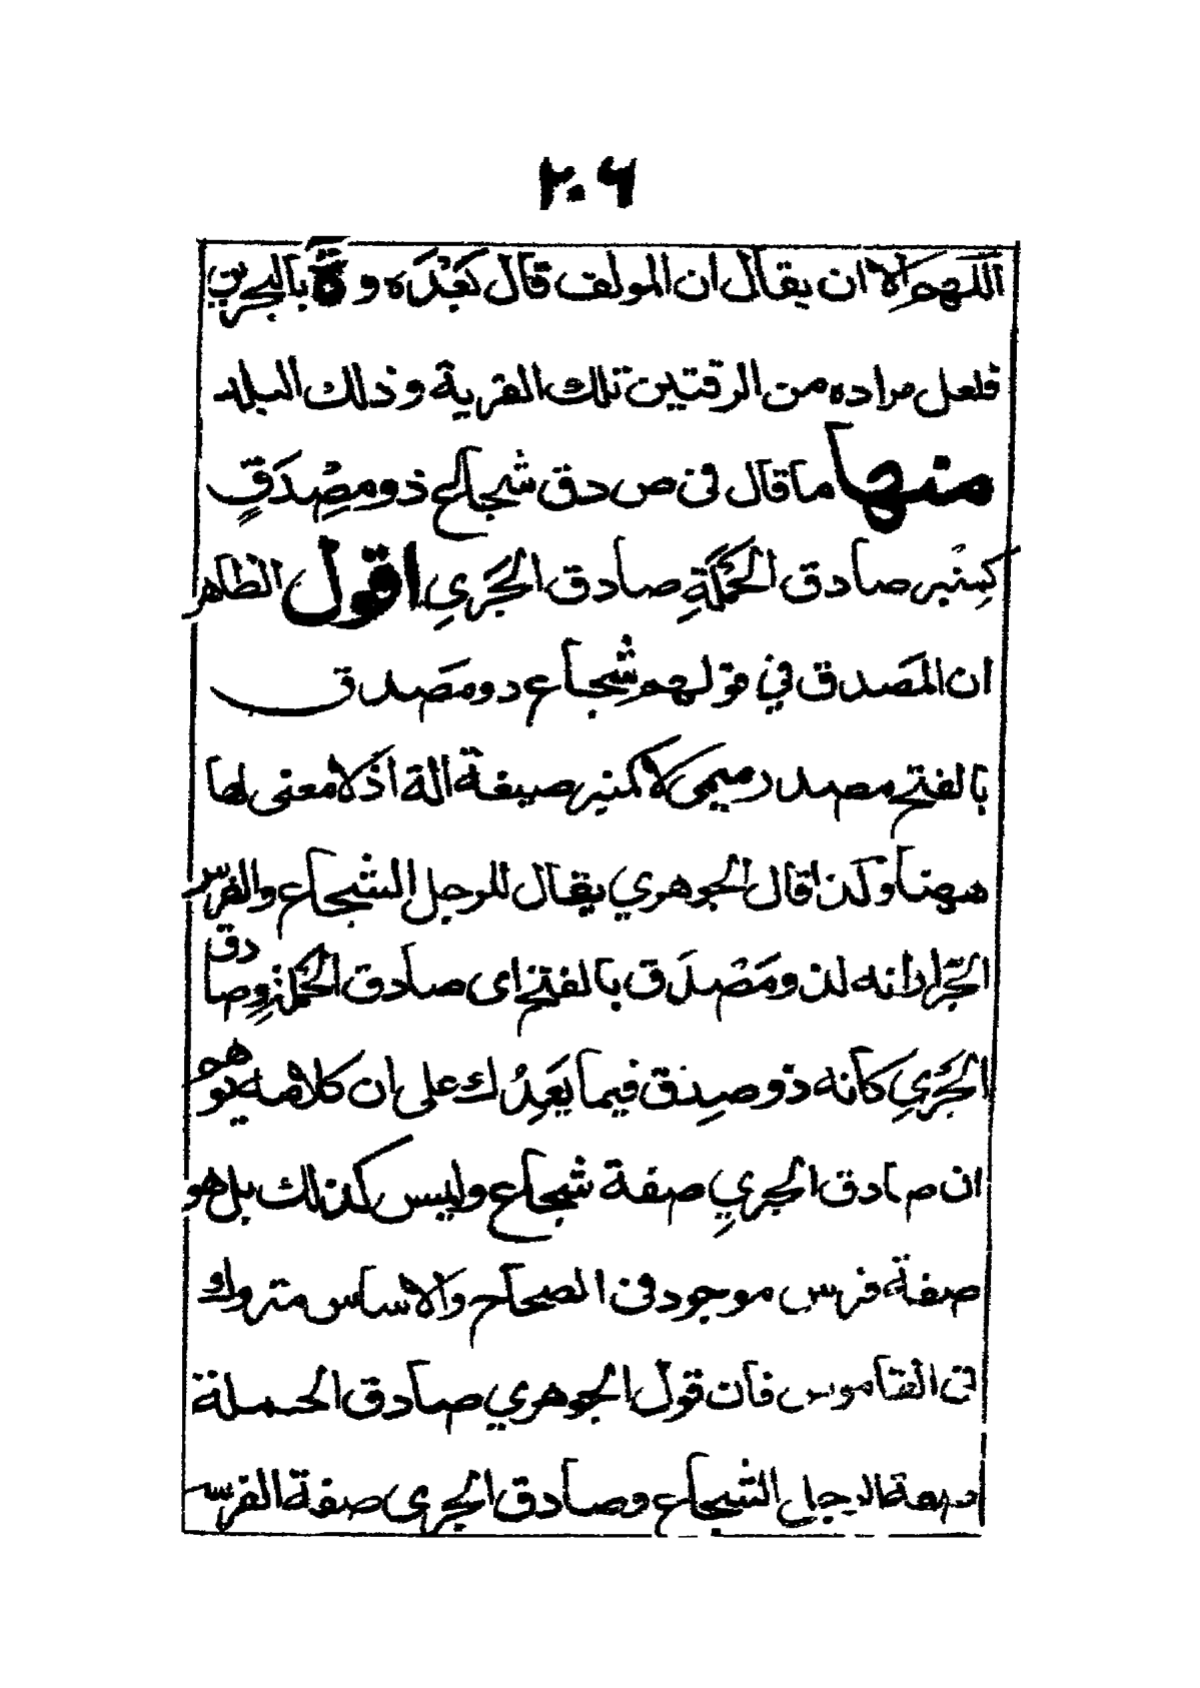 ٢٠٦
اللهم الا ان يقال ان المولف قال بَعْدَه و ة بالبحرين
فلعل مراده من الرقتين تلك القرية و ذلك البلد
منها ما قال فى ص دق شجاع ذو مِصْدَقٍ
كمِنْبر صادق الحَمْلَةِ صادق الجَرْيِ اقول الظاهر
ان المَصدق في قولهم شِجاع ذو مَصَدق
بالفتح مصدر ميمى لا كمنبر صيغة آلة اذ لا معنى لها
ههنا وكذا قال الجوهري يقال للرجل الشجاع والفرس
الجوّاد انه لذو مَصْدَق بالفتح اى صادق الحَمْلةِ و صادق
الجَرْيِ كانه ذو صِدق فيما يَعِدُك على ان كلامه يوهم
ان صادق الجري صفة شجاع وليس كذلك بل هو
صفة فرس موجود فى الصحاح والاساس متروك
فى القاموس فان قول الجوهري صادق الحملة
صفة الرجل الشجاع وصادق الجرى صفة الفرس